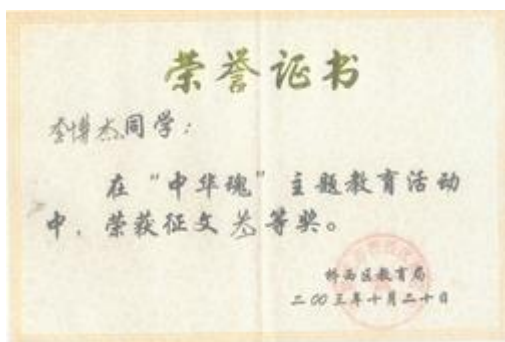 荣誉证书
李博杰同学：
在“中华魂”主题教育活动
中，荣获征文 等奖。
桥西区教育局
二00三年十月二十日